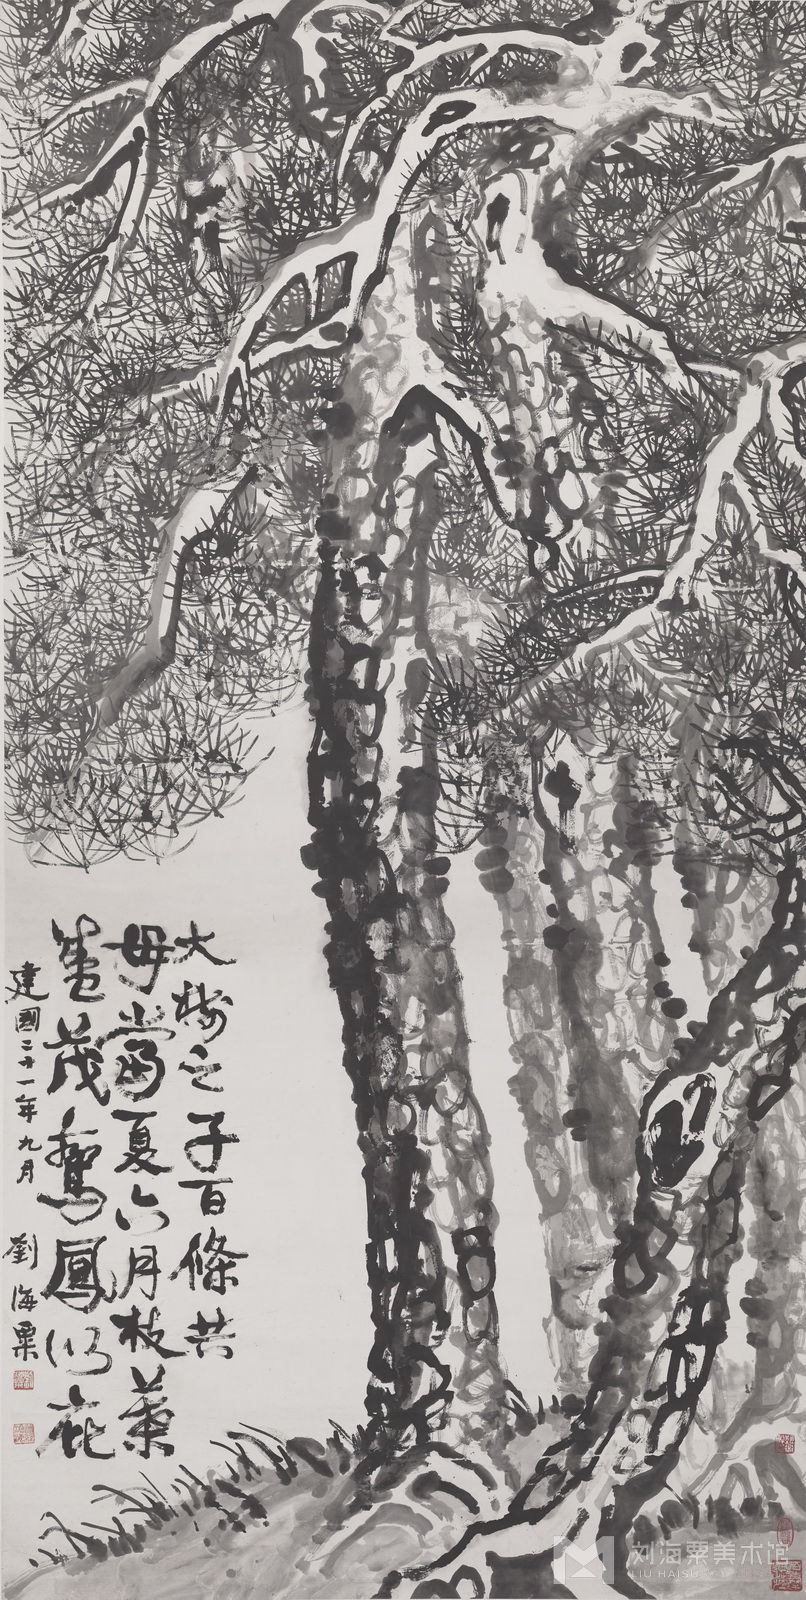 大樹之子百條共
母當夏六月枝葉
盛茂鸞鳳以庇
建國二十一年九月 劉海粟
刘海粟美术馆
LIU HAISU